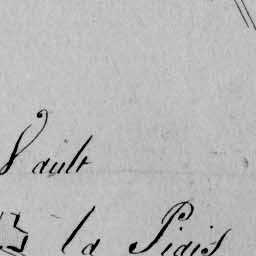 Vault
la Pigis